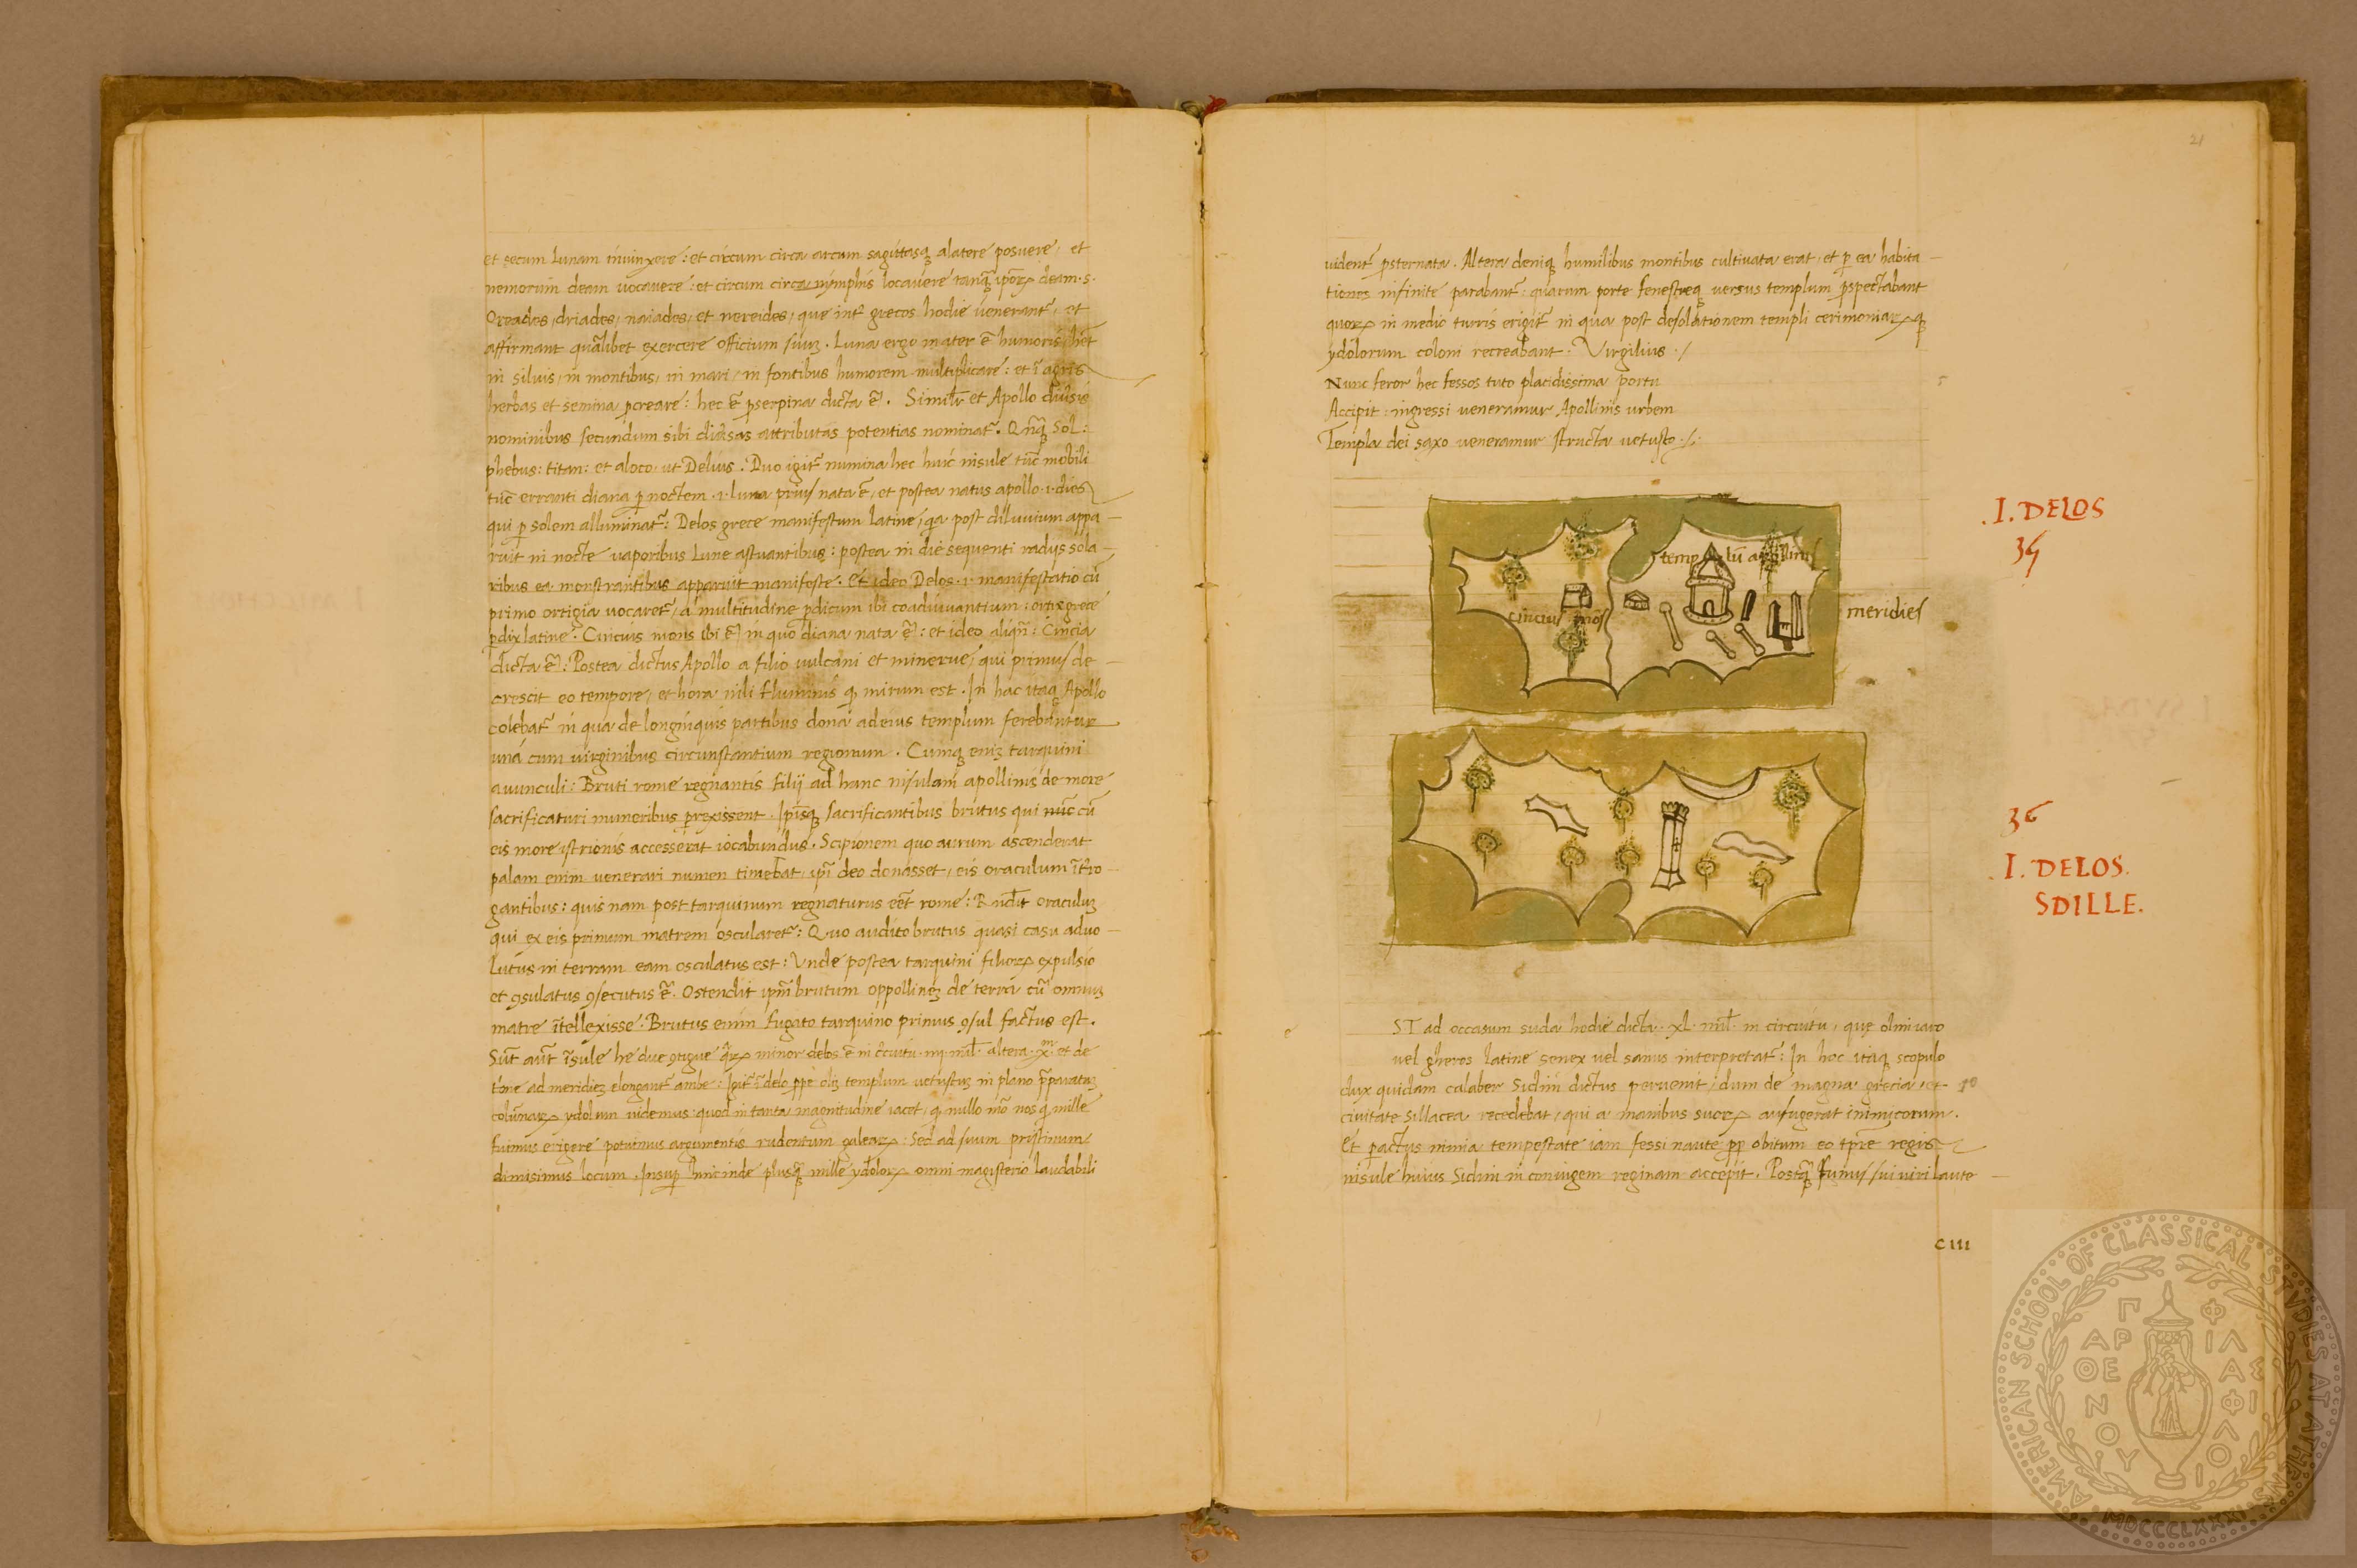 et secum Lunam iniunxere: et circum circa arcum sagittasq; alatere posuere, et
nemorum deam vocavere: et circum circa nymphis locavere tanq̃ ipõꝝ deam .s.
Oreades, driades, naiades, et nereides, que int̃ grecos hodie venerant̃, et
affirmant quãlibet exercere officium suuʒ. Luna ergo mater ẽ humoris hẽt
in silvis, in montibus, in mari, in fontibus humorem multiplicare: et ĩ agris
herbas et semina pcreare: hec ẽ pserpina dicta ẽ. Simil̃r et Apollo divsis
nominibus secundum sibi divsas attributas potentias nominat̃. Qñq; Sol:
phebus: titan: et aloco, ut Delius. Duo igit̃ numina hec huic insule tũc mobili
tũc erranti diana p noctem .i. luna prius nata ẽ, et postea natus apollo .i. dies
qui p solem alluminat̃: Delos grece manifestum latine, qa post diluvium appa
ruit in nocte vaporibus Lune astuantibus: postea in die sequenti radijs sola
ribus ea monstrantibus apparuit manifeste. et ideo Delos .i. manifestatio cũ
primo ortigia vocaret̃, a multitudine pdicum ibi coadiuvantium: ortix grece
pdix latine. Cincius mons ibi ẽ in quo diana nata ẽ: et ideo aliqñ: Cincia
dicta ẽ. Postea dictus Apollo a filio vulcani et minerve, qui primus de
crescit eo tempore, et hora nili fluminis q mirum est. In hac itaq; Apollo
colebat̃ in qua de longinquis partibus dona adeius templum ferebantur
una cum virginibus circunstantium regionum. Cumq; eniʒ tarquini
avunculi: Bruti rome regnantis filij ad hanc insulam apollinis de more
sacrificaturi muneribus prexissent. Ipisq; sacrificantibus brutus qui nũc cũ
eis more istrionis accesserat iocabundus. Scipionem quo aurum ascenderat
palam enim venerari numen timebat, ipĩ deo donasset, eis oraculum ĩt̃ro
gantibus: quis nam post tarquinum regnaturus eẽt rome: Rñdit oraculuʒ
qui ex eis primum matrem oscularet̃: Quo audito brutus quasi casu advo
lutus in terram eam osculatus est: Unde postea tarquini filioꝝ expulsio
et ꝯsulatus ꝯsecutus ẽ. Ostendit ipm̃ brutum oppollineʒ de terra cũ omniuʒ
matre ĩtellexisse. Brutus enim fugato tarquino primus ꝯsul factus est.
Sũt aũt ĩsule he due ꝯtigue q̃ꝝ minor delos ẽ in c̃cuitu .iiij. mil̃. altera .x. et de
tone ad meridieʒ elongant̃ ambe: Igit̃ ĩ delo ppe oliʒ templum vetustuʒ in plano pparatuʒ
colũnaꝝ ydolum videmus quod in tanta magnitudine iacet, q nullo mõ nos q mille
fuimus erigere potuimus argumentis rudentum galeaꝝ: Sed ad suum pristinum
dimisimus locum. Insup hinc inde plusq̃ mille ydoloꝝ omni magisterio laudabili
21
vident̃ psternata. Altera deniq; humilibus montibus cultivata erat, et p ea habita
tiones infinite parabant̃: quarum porte fenestreq; versus templum pspectabant
quoꝝ in medio turris erigit̃ in qua post desolationem templi cerimoniaꝝq;
ydolorum coloni recreabant. Virgilius ./
Nunc feror hec fessos tuto placidissima portu
Accipit: ingressi veneramur Apollinis urbem
Templa dei saxo veneramur structa vetusto ./.
.I. DELOS
35
templũ apollinis
cincius mõs
meridies
36
.I. DELOS.
SDILLE.
ST ad occasum suda hodie dicta .xl. mil̃. in circuitu, que olmivaro
vel gheros latine senex vel sanus interpretat̃: In hoc itaq; scopulo
dux quidam calaber Sidim dictus pervenit, dum de magna grecia, et
civitate sillacea recedebat, qui a manibus suoꝝ aufugerat inimicorum.
Et pactus nimia tempestate iam fessi naute pp obitum eo tpre regis
insule huius Sidini in coniugem reginam accepit. Postq̃ funus sui viri laute
c iii
AMERICAN SCHOOL OF CLASSICAL STUDIES AT ATHENS
MDCCCLXXXI
ΠΑΡΘΕΝΟΥ
ΦΙΛΑΣ ΦΙΛΟΙ